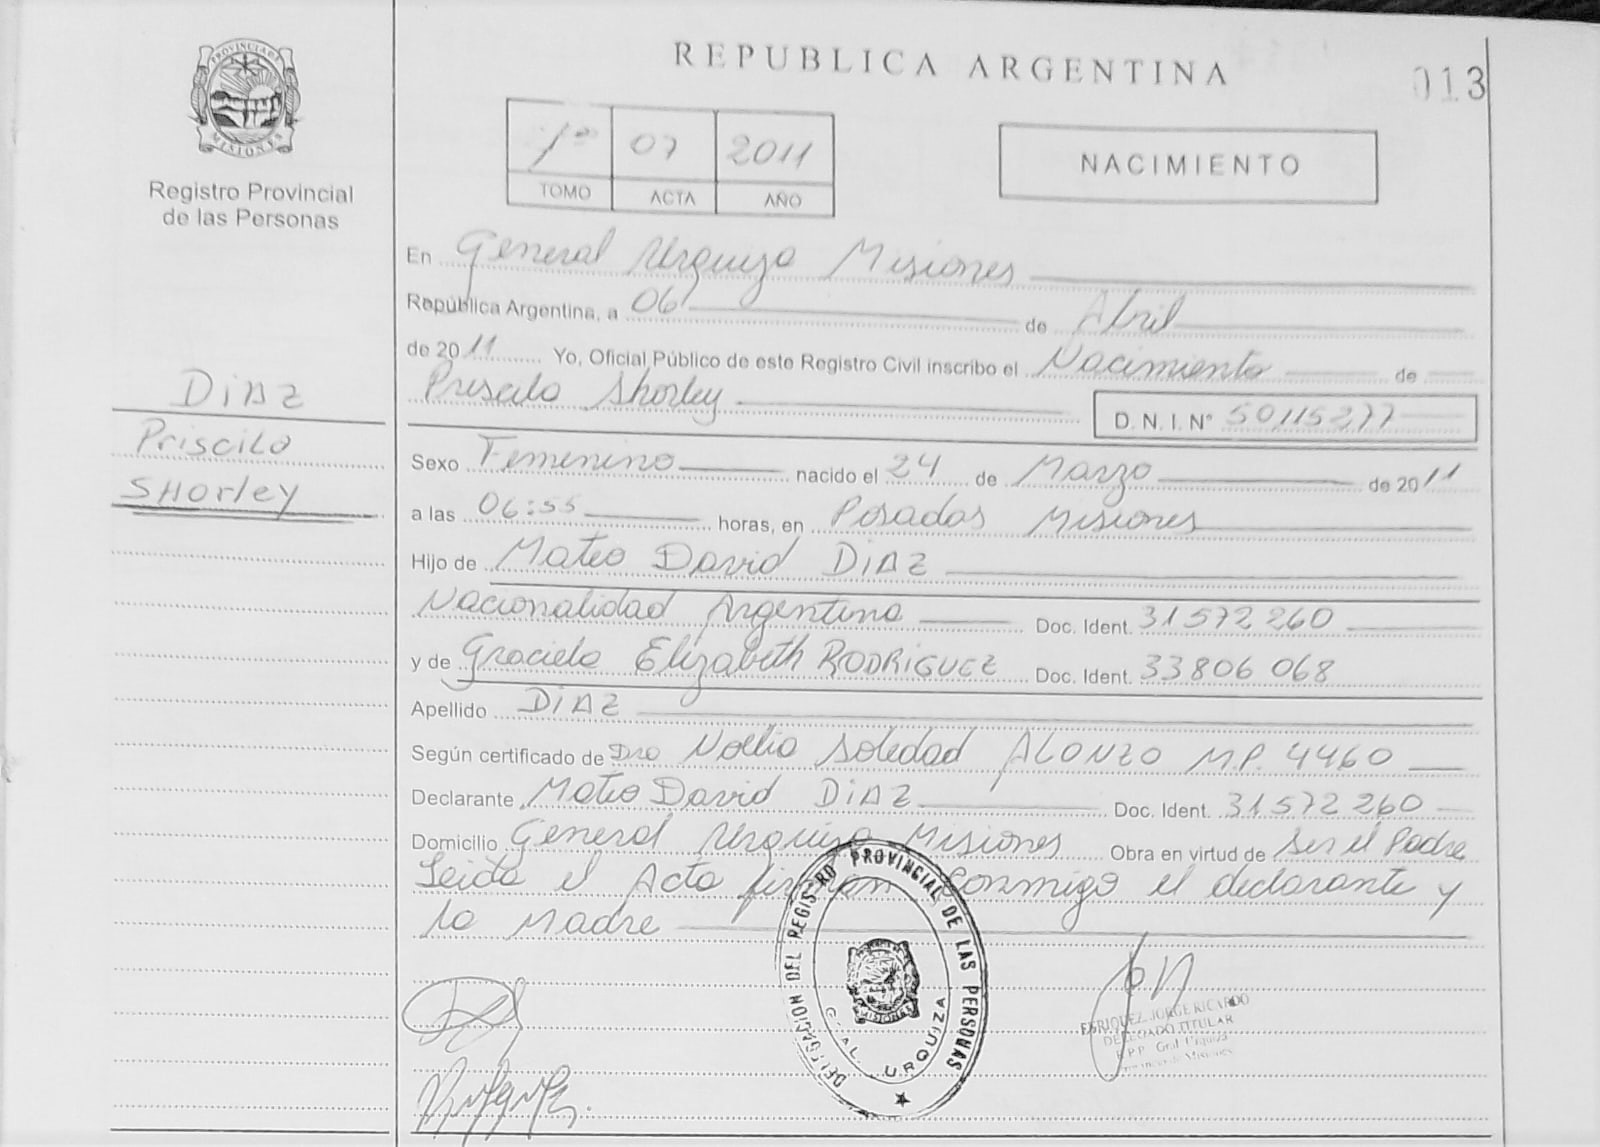 REPUBLICA ARGENTINA
013
PROVINCIA DE
MISIONES
Registro Provincial
de las Personas
1º 07 2011
TOMO ACTA AÑO
NACIMIENTO
DiAZ
Priscila
SHorley
En General Urquiza Misiones
República Argentina, a 06 de Abril
de 2011 Yo, Oficial Público de este Registro Civil inscribo el Nacimiento de
Priscila Shorley D. N. I. Nº 50115277
Sexo Femenino nacido el 24 de Marzo de 2011
a las 06:55 horas, en Posadas Misiones
Hijo de Mateo David DiAZ
Nacionalidad Argentina Doc. Ident. 31572260
y de Graciela Elizabeth RODRIGUEZ Doc. Ident. 33806068
Apellido DiAZ
Según certificado de Dra Noelia Soledad ALONZO M.P. 4460
Declarante Mateo David DiAZ Doc. Ident. 31572260
Domicilio General Urquiza Misiones Obra en virtud de Ser el Padre
Leida el Acta firman conmigo el declarante y
la Madre
DELEGACION DEL REGISTRO PROVINCIAL DE LAS PERSONAS
GRAL. URQUIZA
MISIONES
ENRIQUEZ JORGE RICARDO
DELEGADO TITULAR
R.P.P. Gral Urquiza
Provincia de Misiones